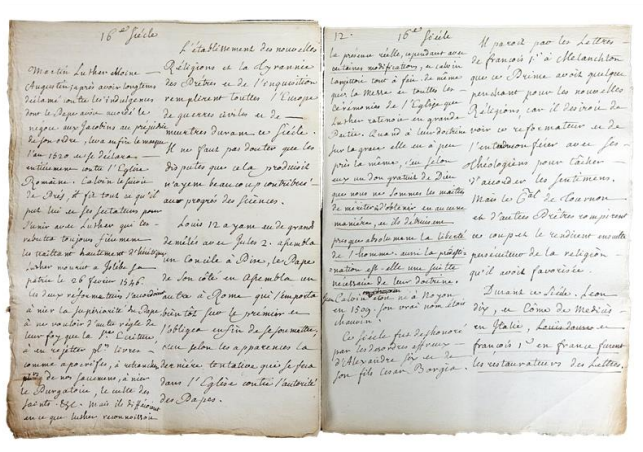 16.e Siécle
Martin Luther Moine
Augustin, après avoir longtems
déclamé contre les indulgences
dont le Pape avoit accordé le
negoce aux Jacobins au prejudice
de son ordre, leva enfin le masque
l'an 1520 et se déclara
entierement contre l'Eglise
Romaine. Calvin le suivit
de Près, et fit tout ce qu'il
put lui et ses sectateurs pour
s'unir avec Luther qui les
rebuta toujours fierement
les traittant hautement d'hérétiques
Luther mourut a
patrie le 26 fevrier 1546.
Les deux reformateurs s'accordoient
à nier la supériorité du Pape
à ne vouloir d'autre régle de
leur foy que la S.te Ecriture
à en rejetter pl.rs livres
comme apocrifes, à retrancher
de nos sacremens, à nier
le Purgatoire, le culte des
saints &c. Mais ils différoient
en ce que Luther reconnoissoit
L'établissement des nouvelles
Réligions et la Tyrannie
des Prêtres et de l'inquisition
remplirent touttes l'Europe
de guerres civiles et de
meurtres durant ce Siécle.
Il ne faut pas douter que les
disputes que cela produisit
n'ayent beaucoup contribué
aux progrès des Sciences.
Louis 12 ayant eu de grands
démélés avec Jules 2. assembla
un Concile à Pise, le Pape
de son côté en assembla un
autre à Rome qui l'emporta
bientôt sur le premier et
l'obligea enfin de se soumettre,
ce fut selon les apparences la
derniére tentative qui se fera
dans l'Eglise contre l'autorité
des Papes.
12. 16.e Siécle
la présence réelle, cependant avec
certaines modifications, et Calvin
la rejettoit tout à fait, de même
que la Messe et touttes les
Cérémonies de l'Eglise que
Luther retenoit en grande
Partie. Quand à leur doctrine
sur la grace elle est à peu
près la même, c'est selon
eux un don gratuit de Dieu
que nous ne sommes les maitres
de mériter ni d'obtenir en aucune
maniére, et ils détruisent
presque absolument la liberté
de l'homme. aussi la prédesti-
nation est elle une suitte
necessaire de leur doctrine.
Calvin étoit né à Noyon
en 1509. son vrai nom étoit
chauvin.
Ce siécle fut deshonoré
par les desordres affreux
d'Alexandre six et de
son fils César Borgia.
Il paroit par les Lettres
de françois p.er à Melancton
que ce Prince avoit quelque
penchant pour les nouvelles
Réligions, car il desiroit de
voir ce reformateur et de
l'entendre conférer avec ses
théologiens pour tâcher
d'accorder les sentimens.
Mais le C.al de Tournon
et d'autres Prêtres rompirent
ce coup et le rendirent ensuite
persécuteur de la religion
qu'il avoit favorisée.
Durant ce Siécle. Leon
dix, et Côme de Médicis
en Italie, Louis douze et
françois 1.er en france furent
les restaurateurs des Lettres.